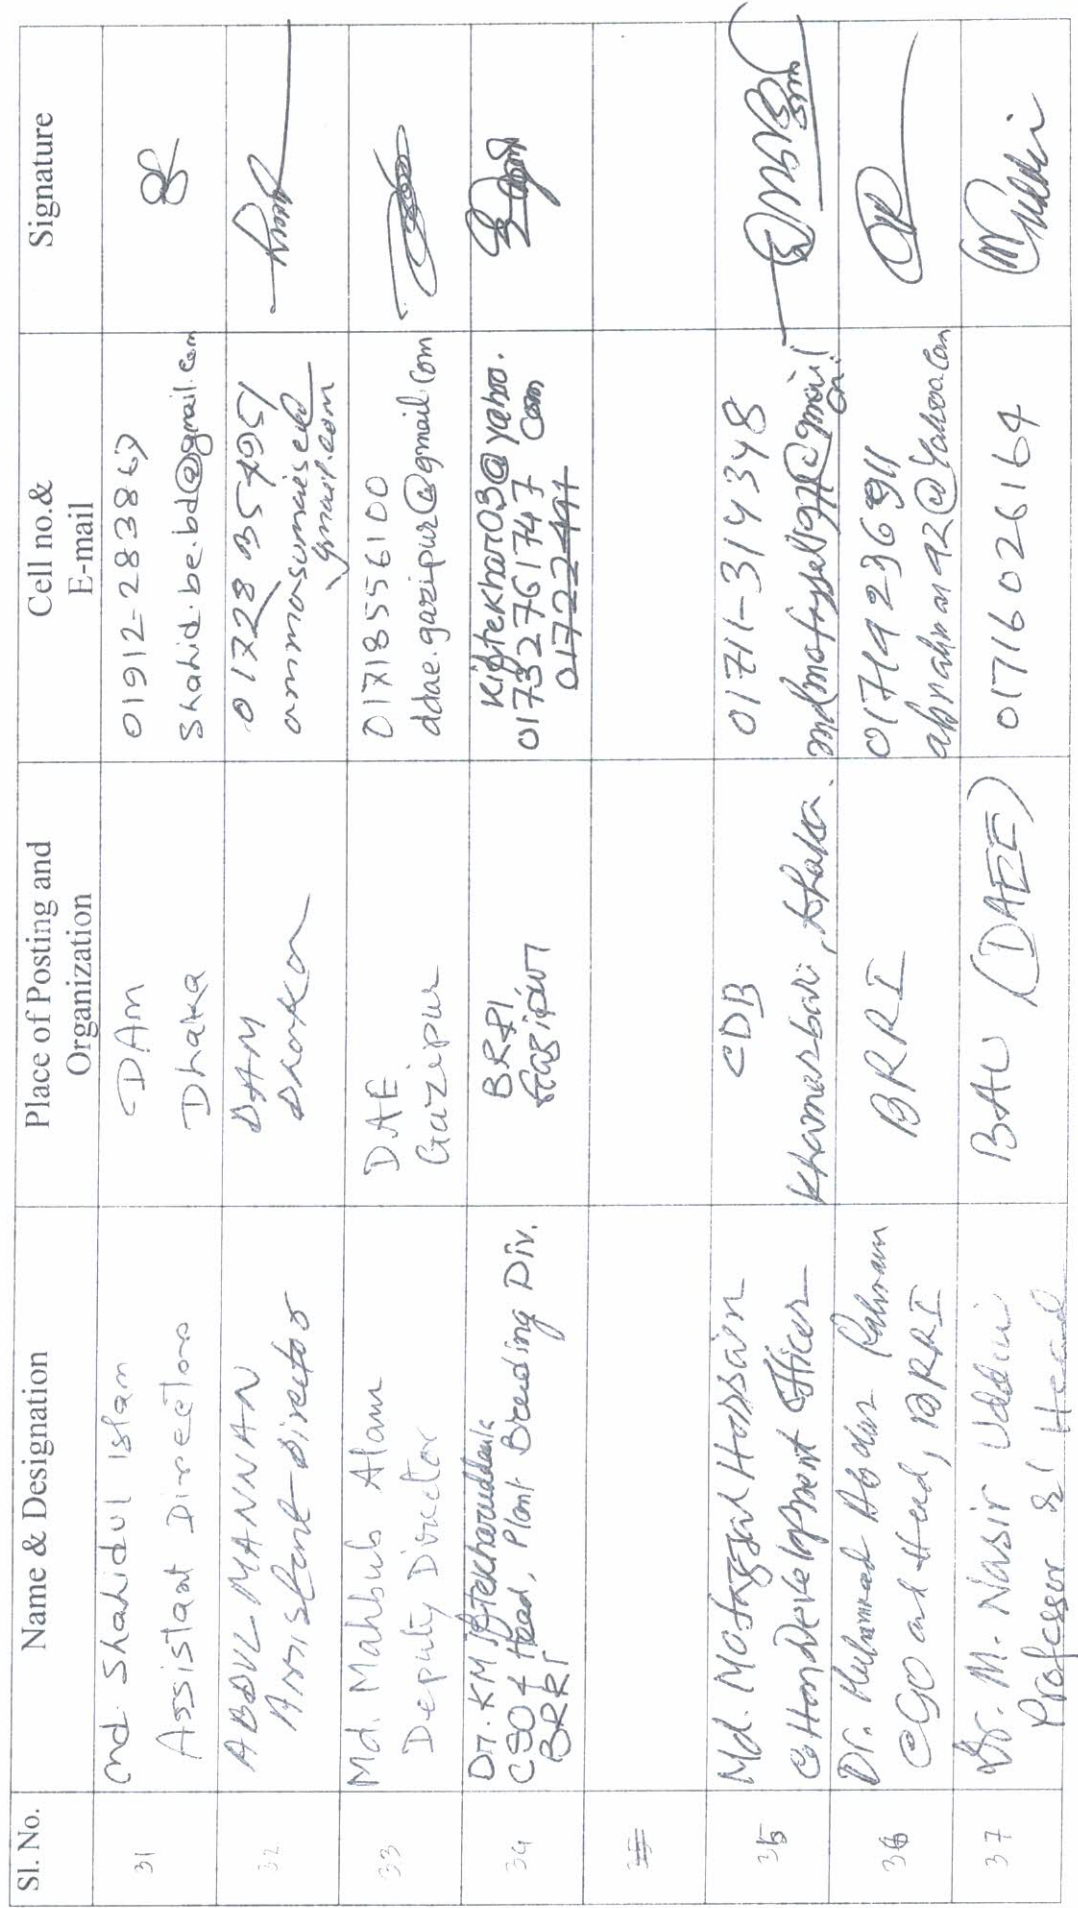 Sl. No.
Name & Designation
Place of Posting and
Organization
Cell no.&
E-mail
Signature
31
Md. Shahidul Islam
Assistant Director
DAM
Dhaka
01912-283867
Shahid.be.bd@gmail.com
32
ABDUL MANNAN
Assistant Director
DAM
Dhaka
gmail.com
33
Md. Mahbub Alam
Deputy Director
DAE
Gazipur
01718556100
ddae.gazipur@gmail.com
34
Dr. KM Iftekharuddaula
CSO & Head, Plant Breeding Div.
BRRI
BRRI,
Gazipur
kiftekhar03@yahoo.
com
01732761747
35
Md. Mofazzal Hossain
Cotton Development Officer
CDB
Khamarbari, Dhaka.
01711-314348
36
Dr. Muhammad Abdur Rahman
CSO and Head, BRRI
BRRI
abrahman92@yahoo.com
37
Dr. M. Nasir Uddin
Professor & Head
BAU (DAEE)
01716026164